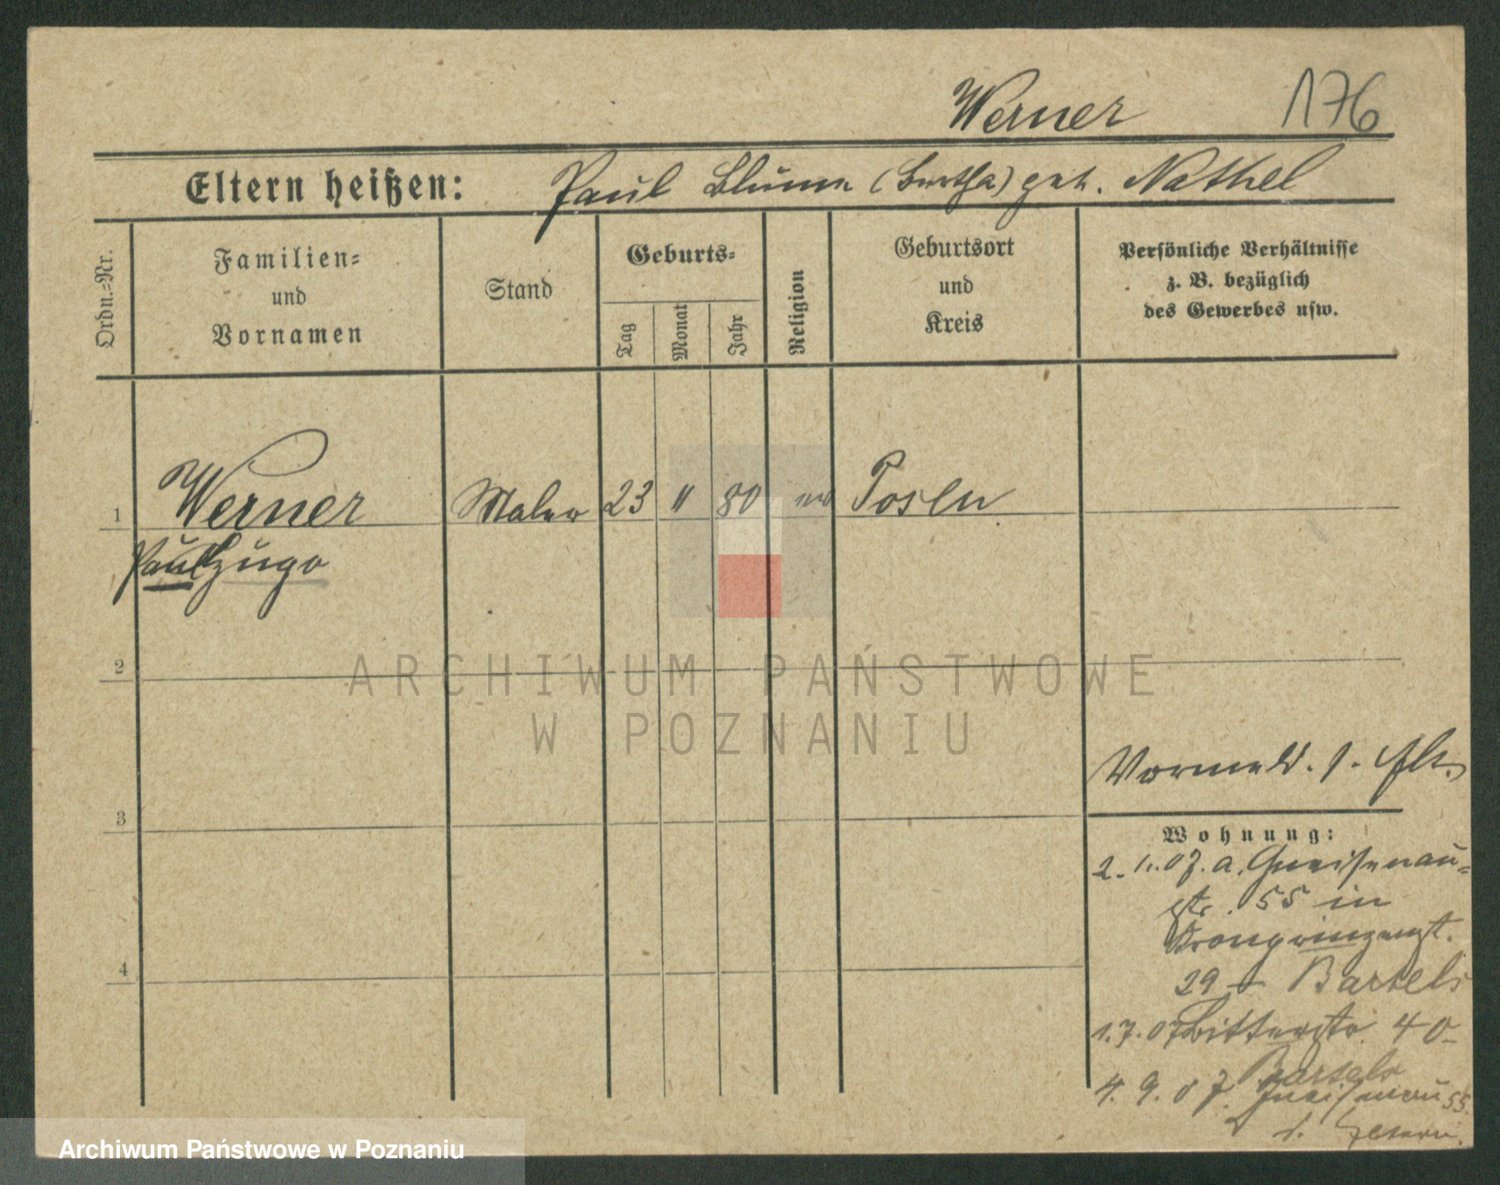 Werner 176
Eltern heißen: Paul Blume (Bertha) geb. Nathel
Ordn.-Nr.
Familien-
und
Vornamen
Stand
Geburts-
Tag
Monat
Jahr
Religion
Geburtsort
und
Kreis
Persönliche Verhältnisse
z. B. bezüglich
des Gewerbes usw.
1 Werner Maler 23 11 80 Posen
Paul Hugo
2
ARCHIWUM PAŃSTWOWE
W POZNANIU
Vormeld. s. Elt.
3
Wohnung:
2. 11. 07. a. Gneisenau-
str. 55 in
Kronprinzenst.
4
29 Bartels
1. 7. 07 Ritterstr. 40
Bartels
4. 9. 07. Gneisenau 55.
Archiwum Państwowe w Poznaniu